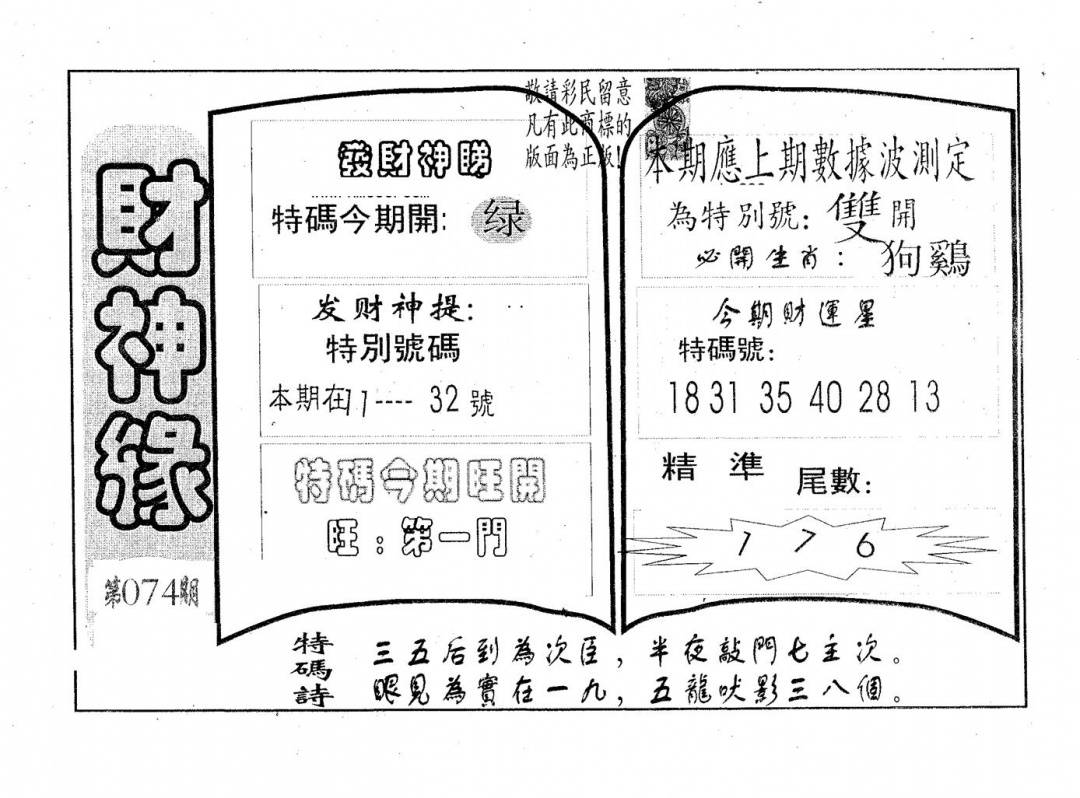 財神緣
第074期
敬請彩民留意
凡有此商標的
版面為正版!
發財神睇
特碼今期開: 绿
发财神提:
特別號碼
本期在11----32號
特碼今期旺開
旺:第一門
本期應上期數據波測定
為特別號: 雙開
必開生肖: 狗鷄
今期財運星
特碼號:
18 31 35 40 28 13
精準 尾數:
1 7 6
特碼詩
三五后到為次臣,半夜敲門七主次。
眼見為實在一九,五龍吠影三八個。